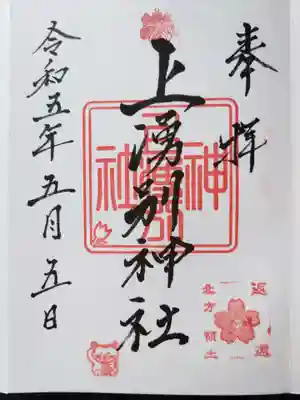 奉拝
上湧別神社
令和五年五月五日
北方領土
返還